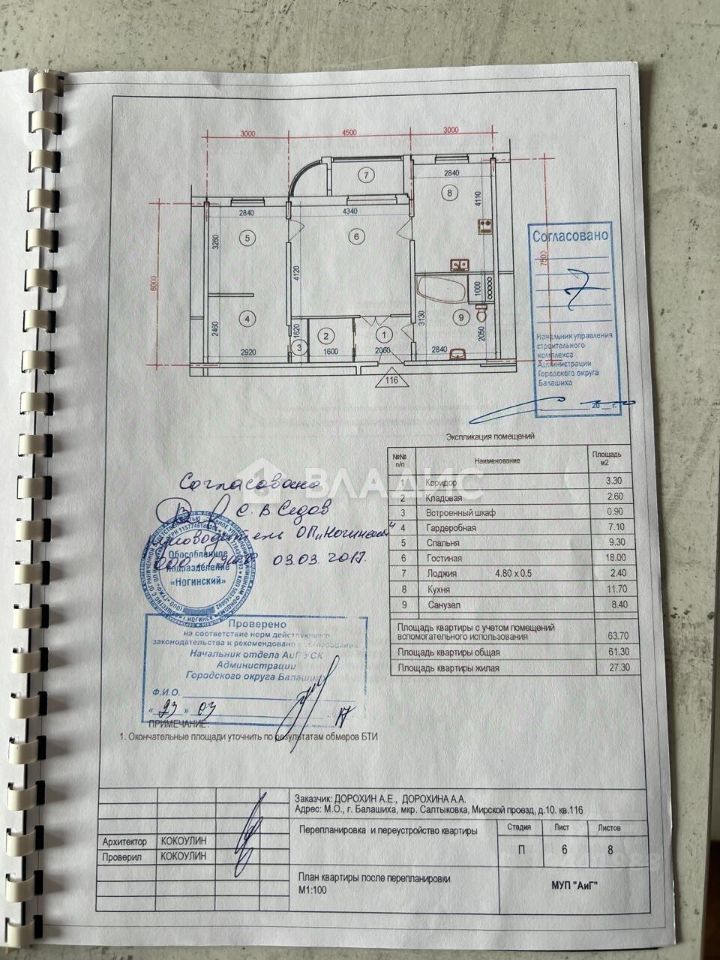 3000 4500 3000
7
8
2840
4110
2840
4340
5
6
3260
6000
4120
7500
1000
3130
9
2050
2460
4
1620
3
2
1
2920
1600
2060
2840
116
Согласовано
Начальник управления
строительного
комплекса
Администрации
Городского округа
Балашиха
20 г.
Экспликация помещений
№№ п/п Наименование Площадь м2
1 Коридор 3.30
2 Кладовая 2.60
3 Встроенный шкаф 0.90
4 Гардеробная 7.10
5 Спальня 9.30
6 Гостиная 18.00
7 Лоджия 4.80 x 0.5 2.40
8 Кухня 11.70
9 Санузел 8.40
Площадь квартиры с учетом помещений
вспомогательного использования 63.70
Площадь квартиры общая 61.30
Площадь квартиры жилая 27.30
ВЛАДИС
Согласовано
С. В Седов
руководитель ОП „Ногинский"
ООО 03.03.2017.
Обособленное
подразделение
«Ногинский»
Проверено
на соответствие норм действующего
законодательства и рекомендовано к согласованию
Начальник отдела АиГ УСК
Администрации
Городского округа Балашиха
Ф.И.О.
« 23 » 03 17
ПРИМЕЧАНИЕ:
1. Окончательные площади уточнить по результатам обмеров БТИ
Заказчик: ДОРОХИН А.Е., ДОРОХИНА А.А.
Адрес: М.О., г. Балашиха, мкр. Салтыковка, Мирской проезд, д.10. кв.116
Архитектор КОКОУЛИН
Проверил КОКОУЛИН
Перепланировка и переустройство квартиры
Стадия Лист Листов
П 6 8
План квартиры после перепланировки
М1:100
МУП "АиГ"